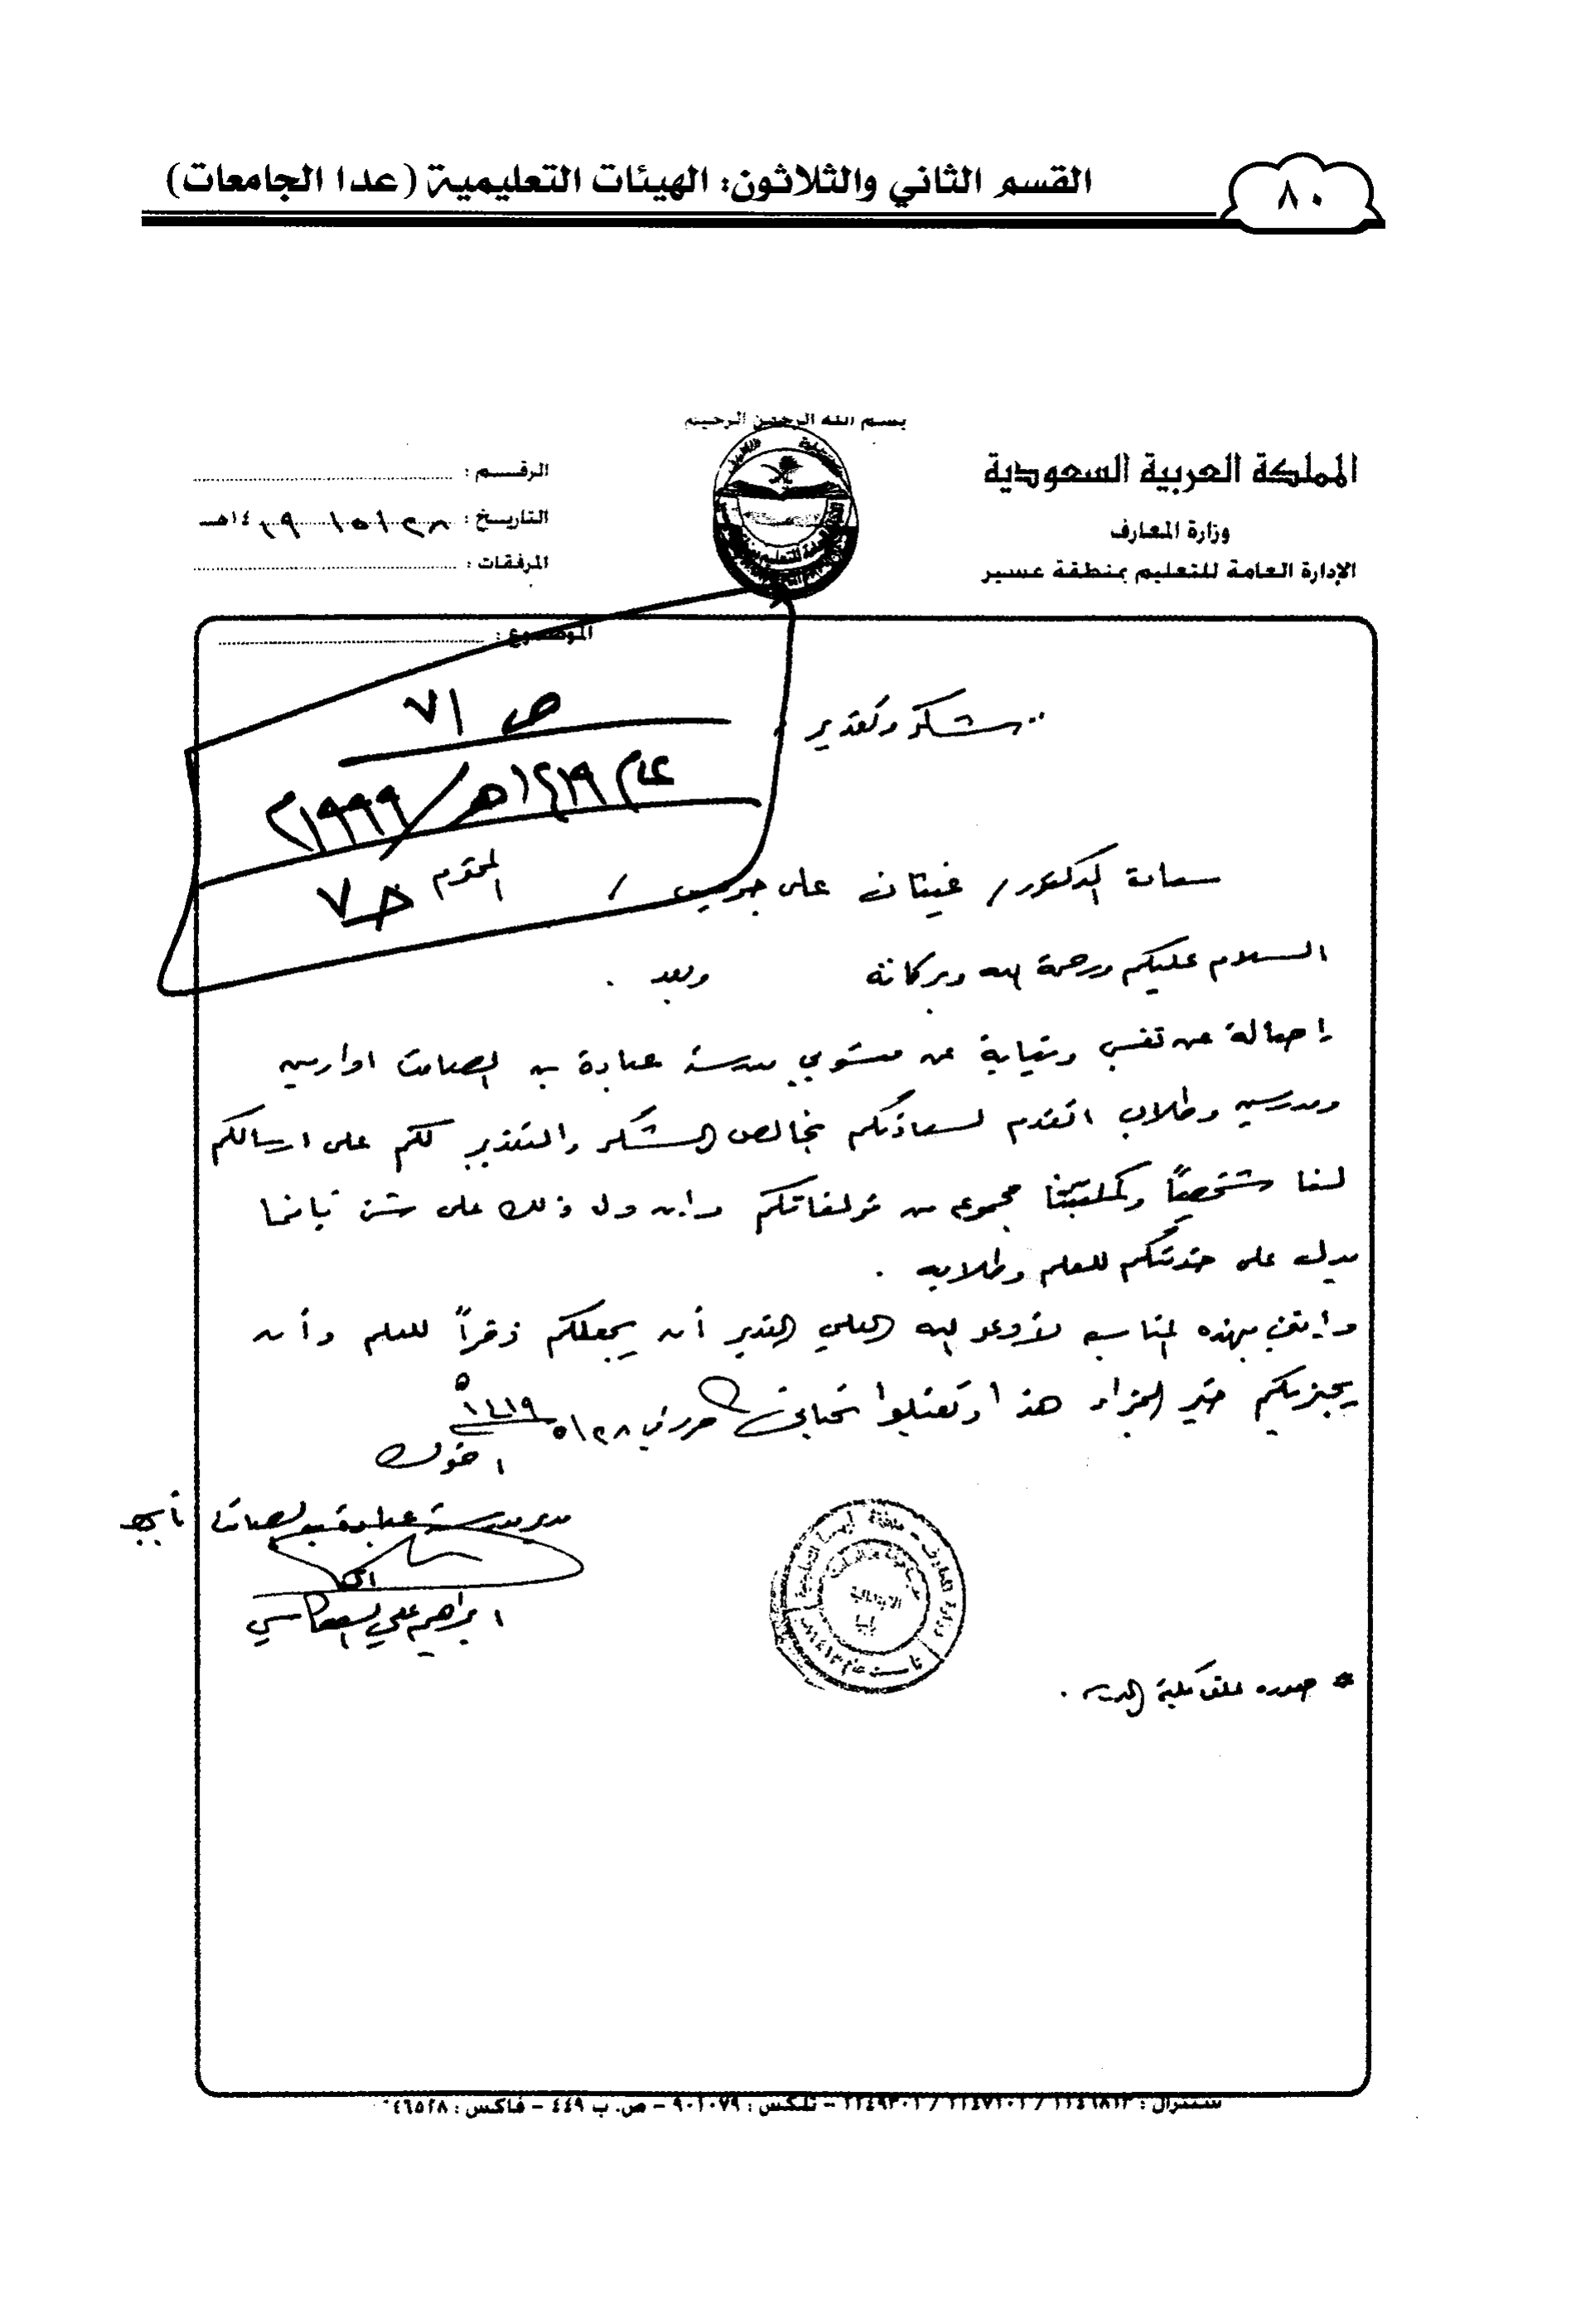 القسم الثاني والثلاثون: الهيئات التعليمية (عدا الجامعات)
٨٠
بسم الله الرحمن الرحيم
المملكة العربية السعودية
وزارة المعارف
الإدارة العامة للتعليم بمنطقة عسير
الرقم :
التاريخ : ٢٨/٥/١٤١٩هـ
المرفقات :
الموضوع :
ص ٧١
عام ١٤١٩هـ/١٩٩٩م
شكر وتقدير
سعادة الدكتور/ غيثان على جريس / المحترم
السلام عليكم ورحمة الله وبركاته وبعد .
إصالة عن نفسي ونيابة عن منسوبي مدرسة عبادة بن الصامت اداريين
ومدرسين وطلاب اتقدم لسعادتكم بخالص الشكر والتقدير لكم على ارسالكم
لنا شخصياً ولمكتبتنا مجموعه من مؤلفاتكم وإن دل ذلك على شئ فإنما
يدل على خدمتكم للعلم وطلابه .
وإنني بهذه المناسبه لأدعو الله العلي القدير أن يجعلكم ذخراً للعلم وأن
يجزيكم خير الجزاء هذا وتقبلوا تحياتي حرر في ٢٨/٥/١٤١٩هـ
اخوك
مدير مدرسة عبادة بن الصامت بأبها
ابراهيم علي
* صوره لملف مكتبة المدرسه .
سنترال : / / – تلكس : ٩٠١٠٧٩ – ص. ب ٤٤٩ – فاكس :